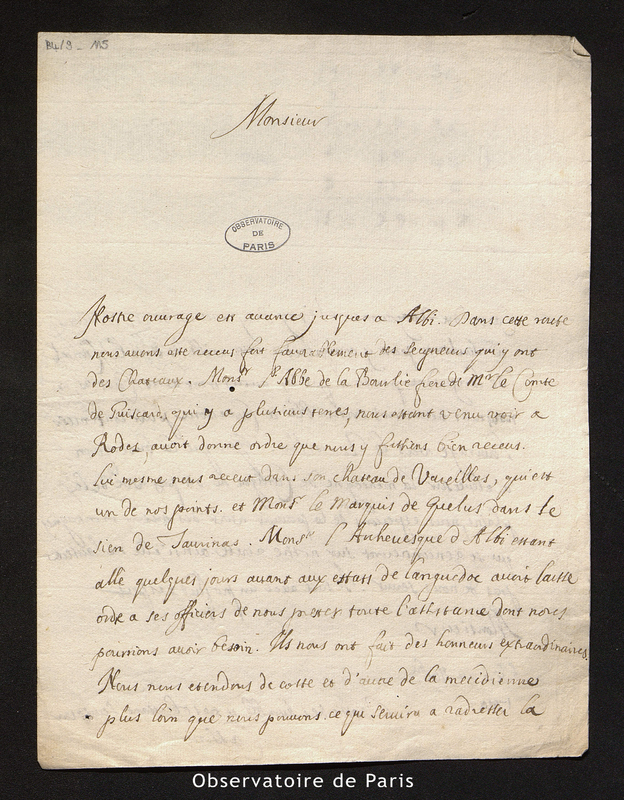 B4/9 - 115
Monsieur
OBSERVATOIRE
DE
PARIS
Nostre ouvrage est avancé jusques a Albi. Dans cette route
nous avons esté receus fort favorablement des seigneurs qui y ont
des Chateaux. Mons.r l'Abbé de la Bourlie frere de Mr. le Comte
de Guiscard, qui y a plusieurs terres, nous estant venu voir a
Rodez, avoit donné ordre que nous y fussions bien receus.
Lui mesme nous receut dans son chateau de Vareilles, qui est
un de nos points. et Mons.r le Marquis de Quelus dans le
sien de Taurinas. Mons.r l'Archevesque d'Albi estant
allé quelques jours avant aux estats de languedoc avoit laissé
ordre a ses officiers de nous prester toute l'assistance dont nous
pourrions avoir besoin. Ils nous ont fait des honneurs extraordinaires.
Nous nous etendons de costé et d'autre de la meridienne
plus loin que nous pouvons. ce qui servira a radresser la
Observatoire de Paris